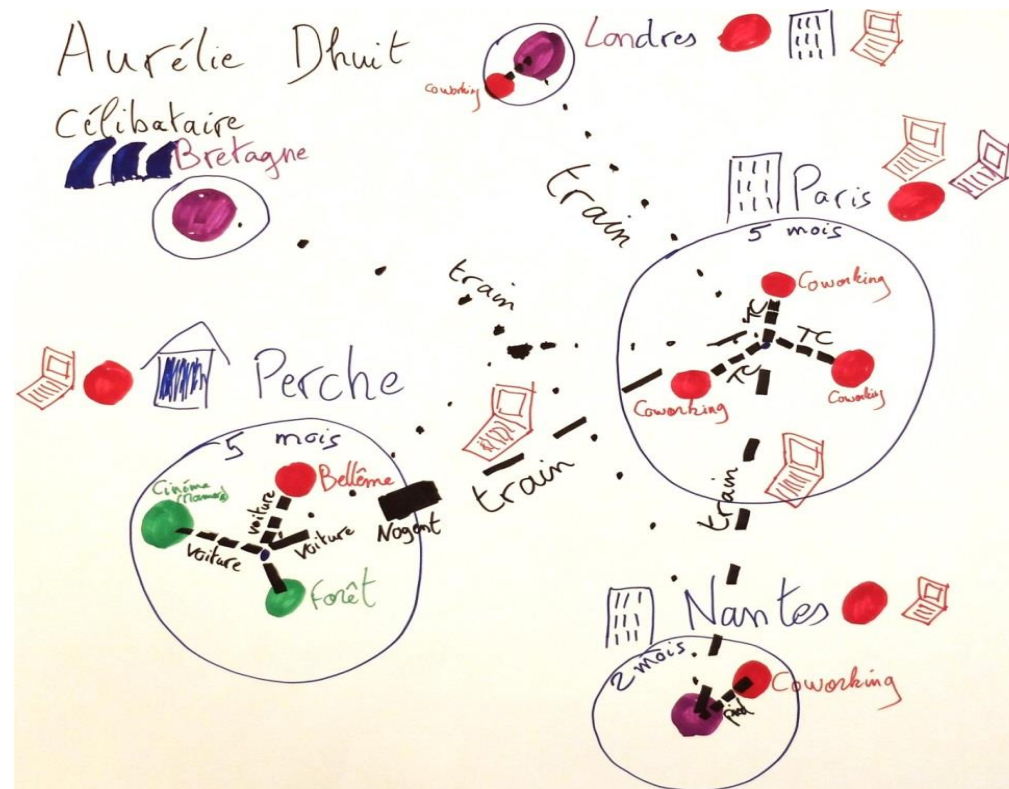 Aurélie Dhuit
Célibataire
Bretagne
Londres
coworking
train
Paris
5 mois
Coworking
TC
TC
TC
Coworking
Coworking
train
Perche
5 mois
Cinéma
Bellême
voiture
voiture
voiture
Forêt
Nogent
train
train
Nantes
2 mois
Coworking
pied